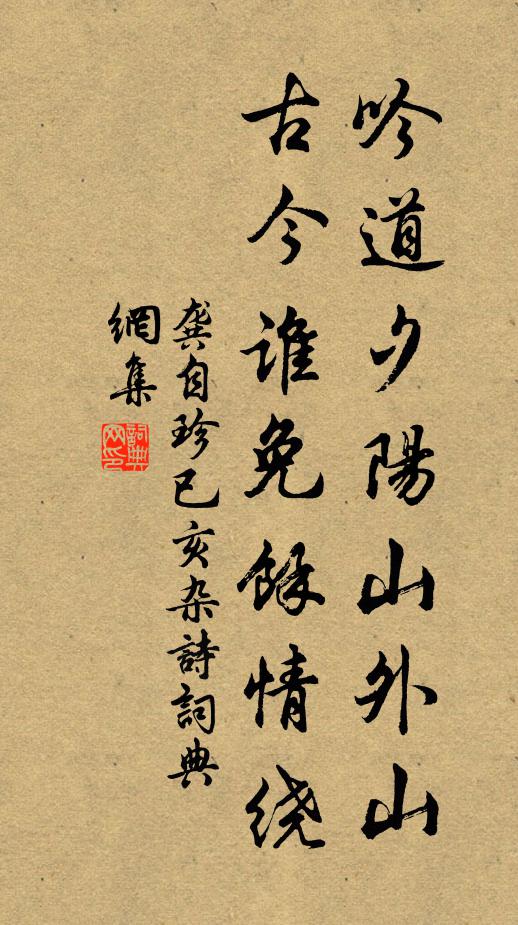 吟道夕陽山外山
古今誰免餘情绕
龚自珍已亥杂詩詞典
網集
詞典
网印